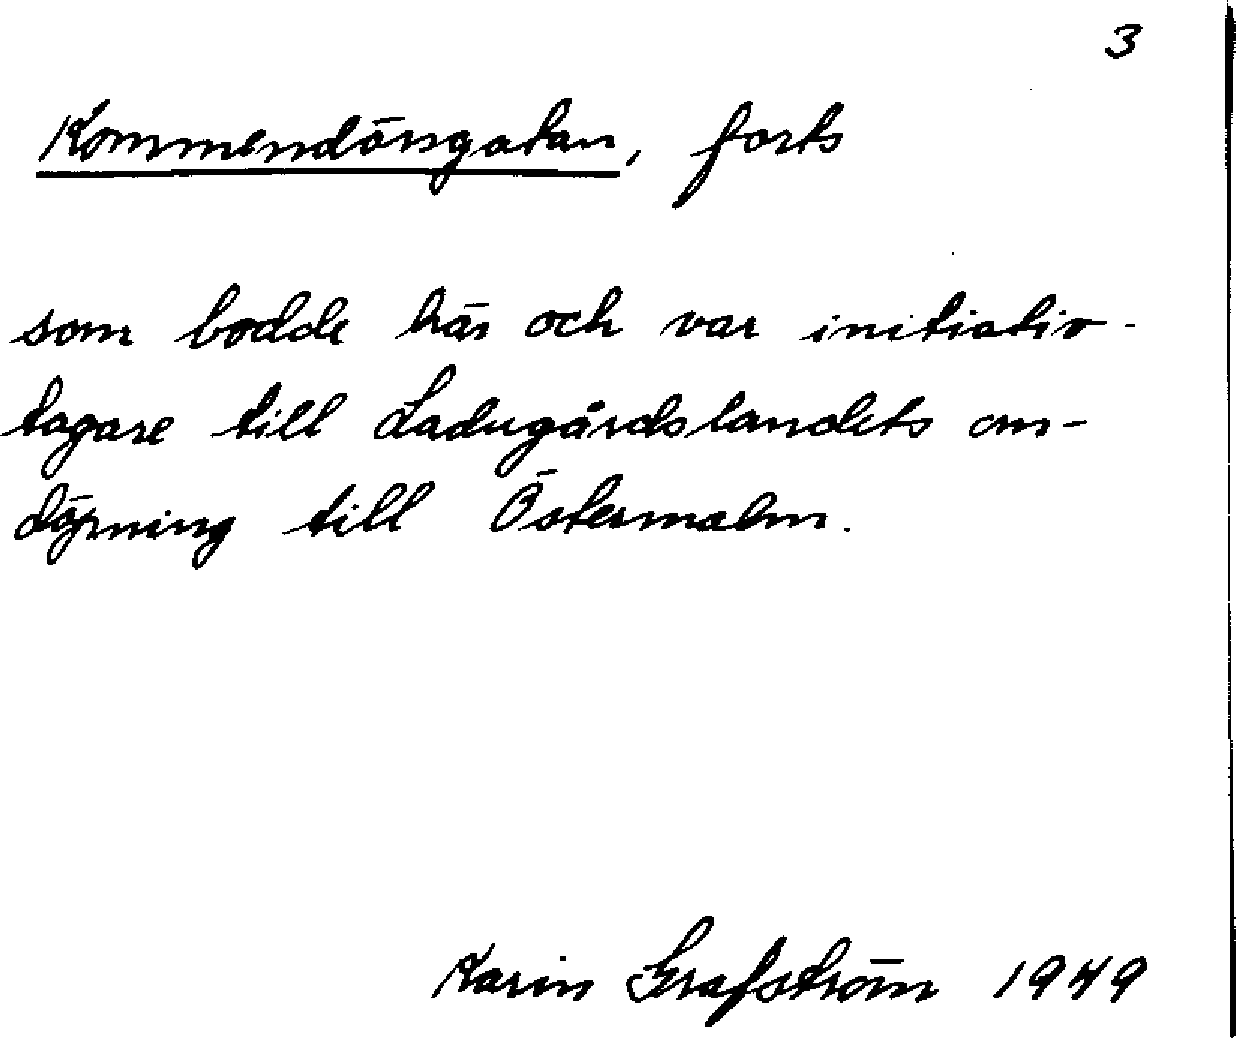 3
Kommendörsgatan, forts
som bodde här och var initiativ-
tagare till Ladugårdslandets om-
döpning till Östermalm.
Karin Grafström 1949